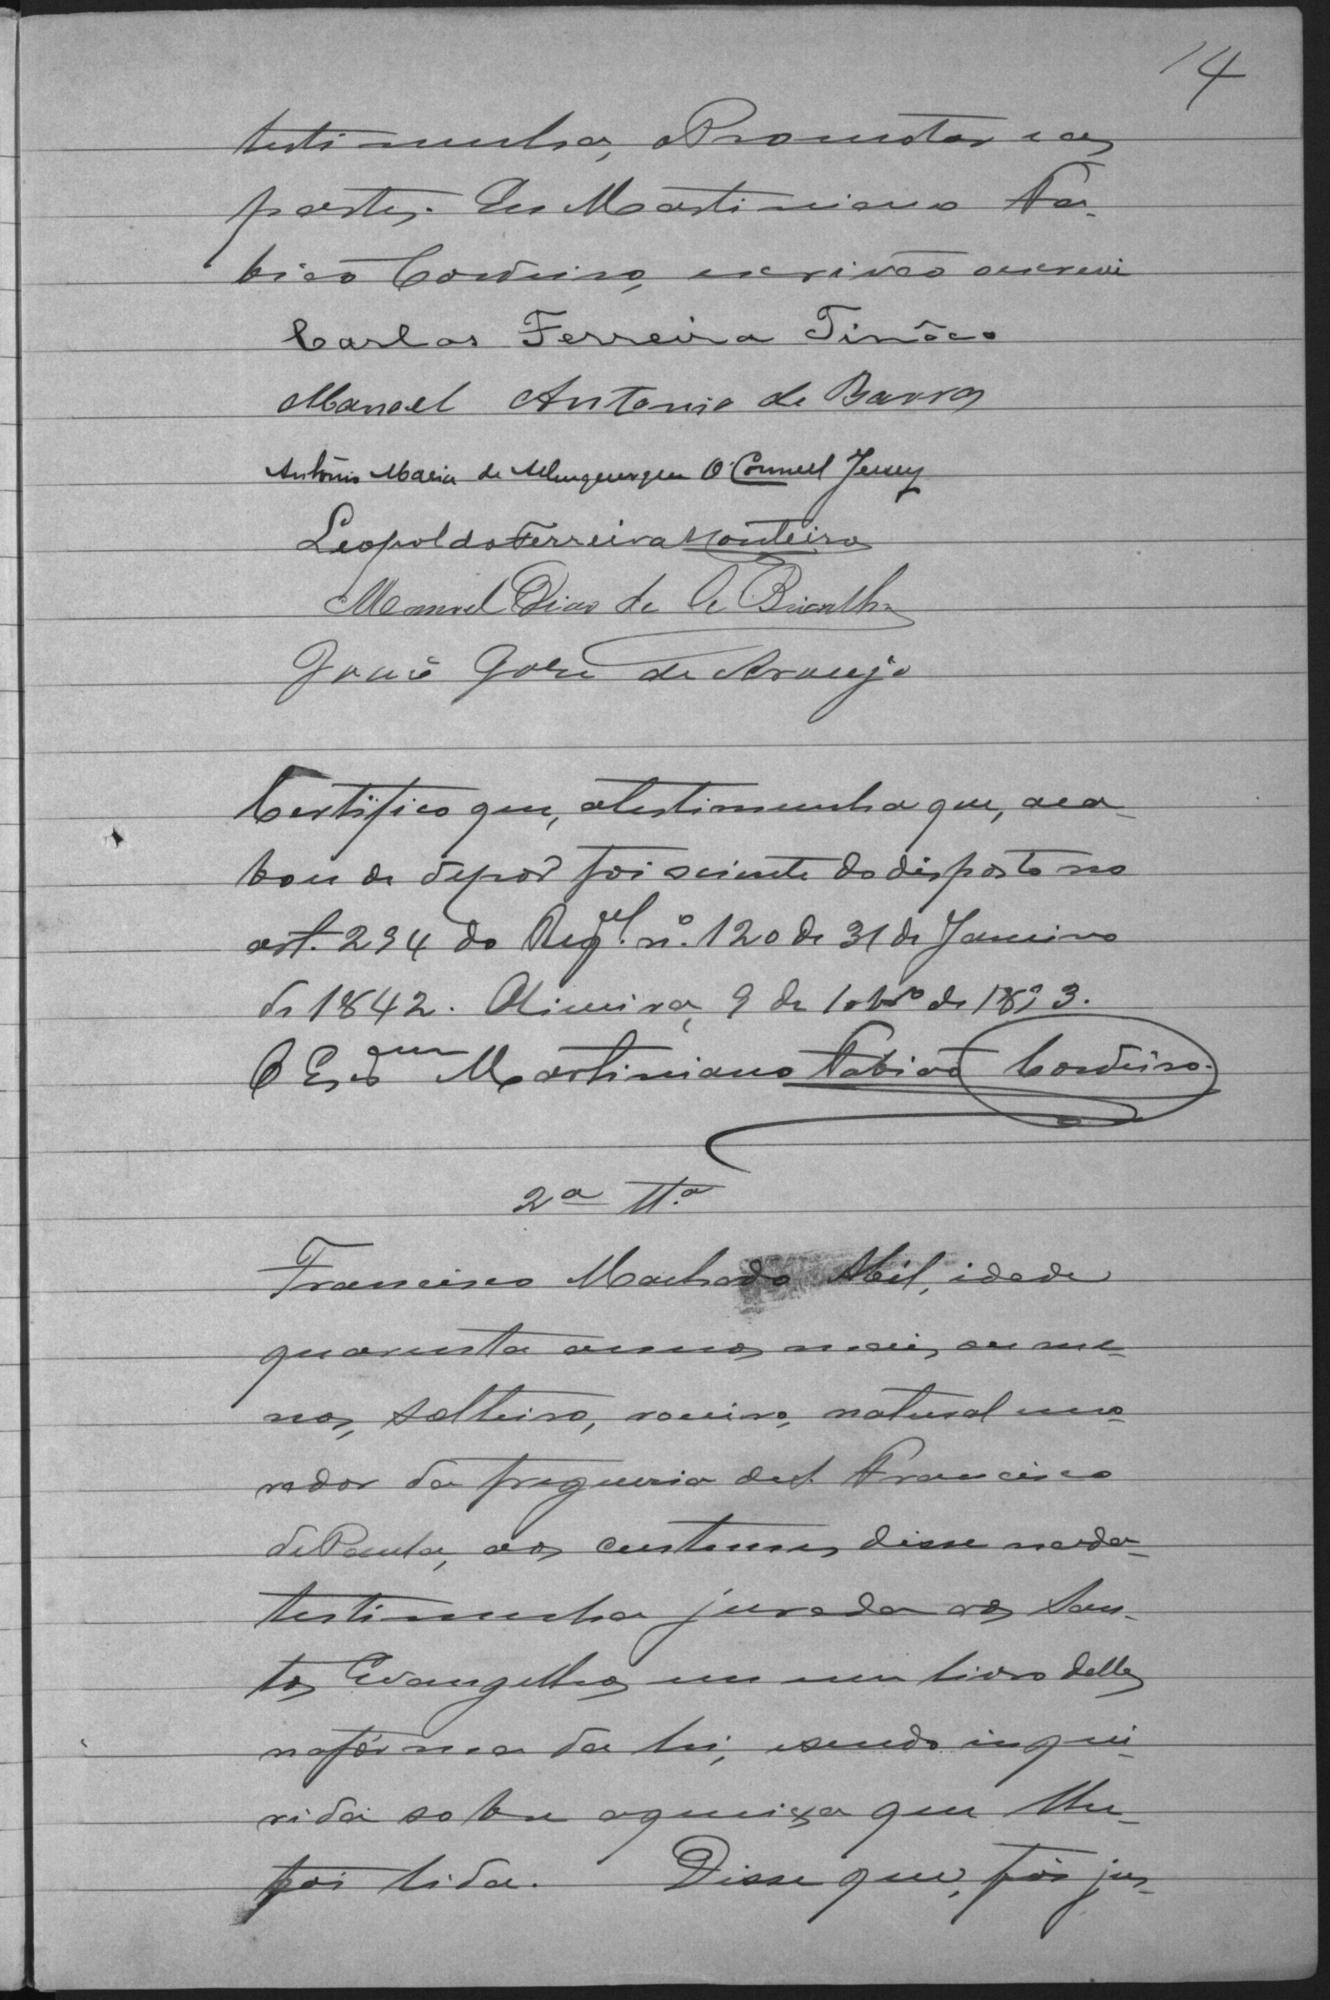 14
testimunha, o Promotor e as
partes. Eu Martiniano Fa-
bião Cordeiro, escrivão o escrevi
Carlos Ferreira Tinôco
Manoel Antonio de Barros
Antônio Maria de Albuquerque O'Connell Jersey
Leopoldo Ferreira Monteiro
Manoel Dias de
José de Araujo
Certifico que, a testimunha que, aca-
bou de depor foi sciente do disposto no
art. 294 do Reg.el n.º 120 de 31 de Janeiro
de 1842. 9 de 8bro de 1893.
O Escvam Martiniano Fabião Cordeiro.
2a Tt.a
Francisco Machado Abil, idade
quarenta annos mais, ou me-
nos, solteiro, roceiro, natural e mo-
rador da freguesia de S. Francisco
de Paula, aos custumes disse nada
testimunha jurada aos San-
tos Evangelhos em um livro delles
na fórma da lei, e sendo inqui-
rida sobre a queixa que lhe
foi lida. Disse que, foi jus-